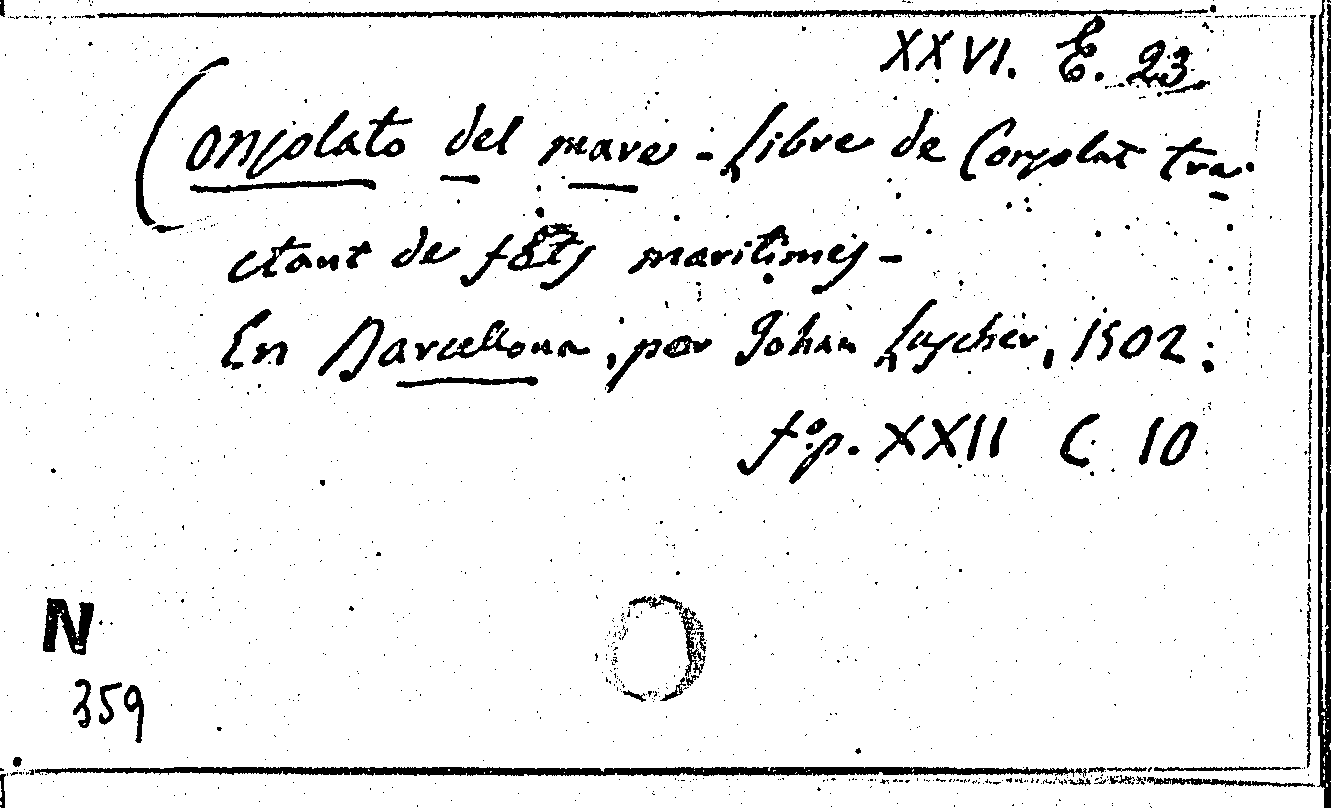 XXVI. E. 23
Consolato del mare - Libre de Consolat tra-
ctant de fets maritimes -
En Barcellona, per Johan Luscher, 1502.
f.º p. XXII C 10
N
359